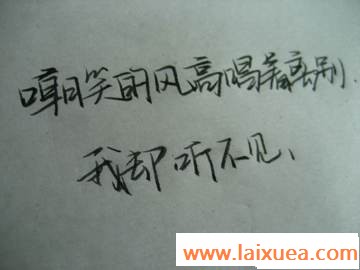 嘲笑的风高唱着离别.
我却听不见、
www.laixuea.com